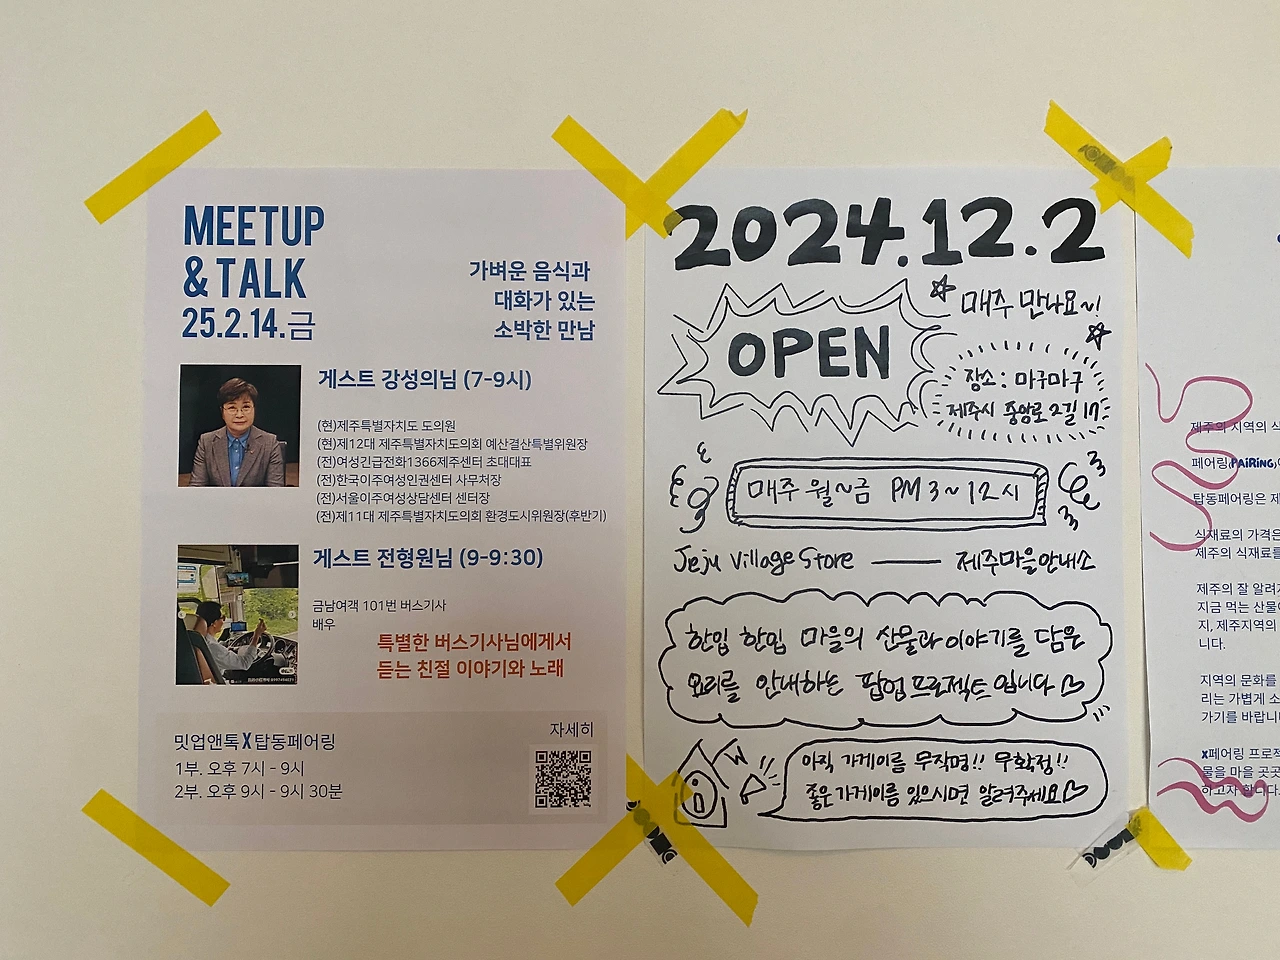 MEETUP
& TALK
25.2.14.금
가벼운 음식과
대화가 있는
소박한 만남
게스트 강성의님 (7-9시)
(현)제주특별자치도 도의원
(현)제12대 제주특별자치도의회 예산결산특별위원장
(전)여성긴급전화1366제주센터 초대대표
(전)한국이주여성인권센터 사무처장
(전)서울이주여성상담센터 센터장
(전)제11대 제주특별자치도의회 환경도시위원장(후반기)
게스트 전형원님 (9-9:30)
금남여객 101번 버스기사
배우
특별한 버스기사님에게서
듣는 친절 이야기와 노래
밋업앤톡 X 탑동페어링
1부. 오후 7시 - 9시
2부. 오후 9시 - 9시 30분
자세히
2024.12.2
매주 만나요~!
OPEN
장소 : 마구마구
제주시 중앙로 2길 17
매주 월~금 PM 3~12시
Jeju Village Store — 제주마을안내소
한입 한입 마을의 산물과 이야기를 담은
요리를 안내하는 팝업 프로젝트입니다
아직 가게이름 무작명!! 무확정!!
좋은 가게이름 있으시면 알려주세요
제주의 지역의 식
페어링(PAiRiNG)
탑동페어링은 제
식재료의 가격은
제주의 식재료를
제주의 잘 알려지
지금 먹는 산물
지, 제주지역의
니다.
지역의 문화를
리는 가볍게 소
가기를 바랍니
X페어링 프로젝
물을 마을 곳곳
하고자 합니다.